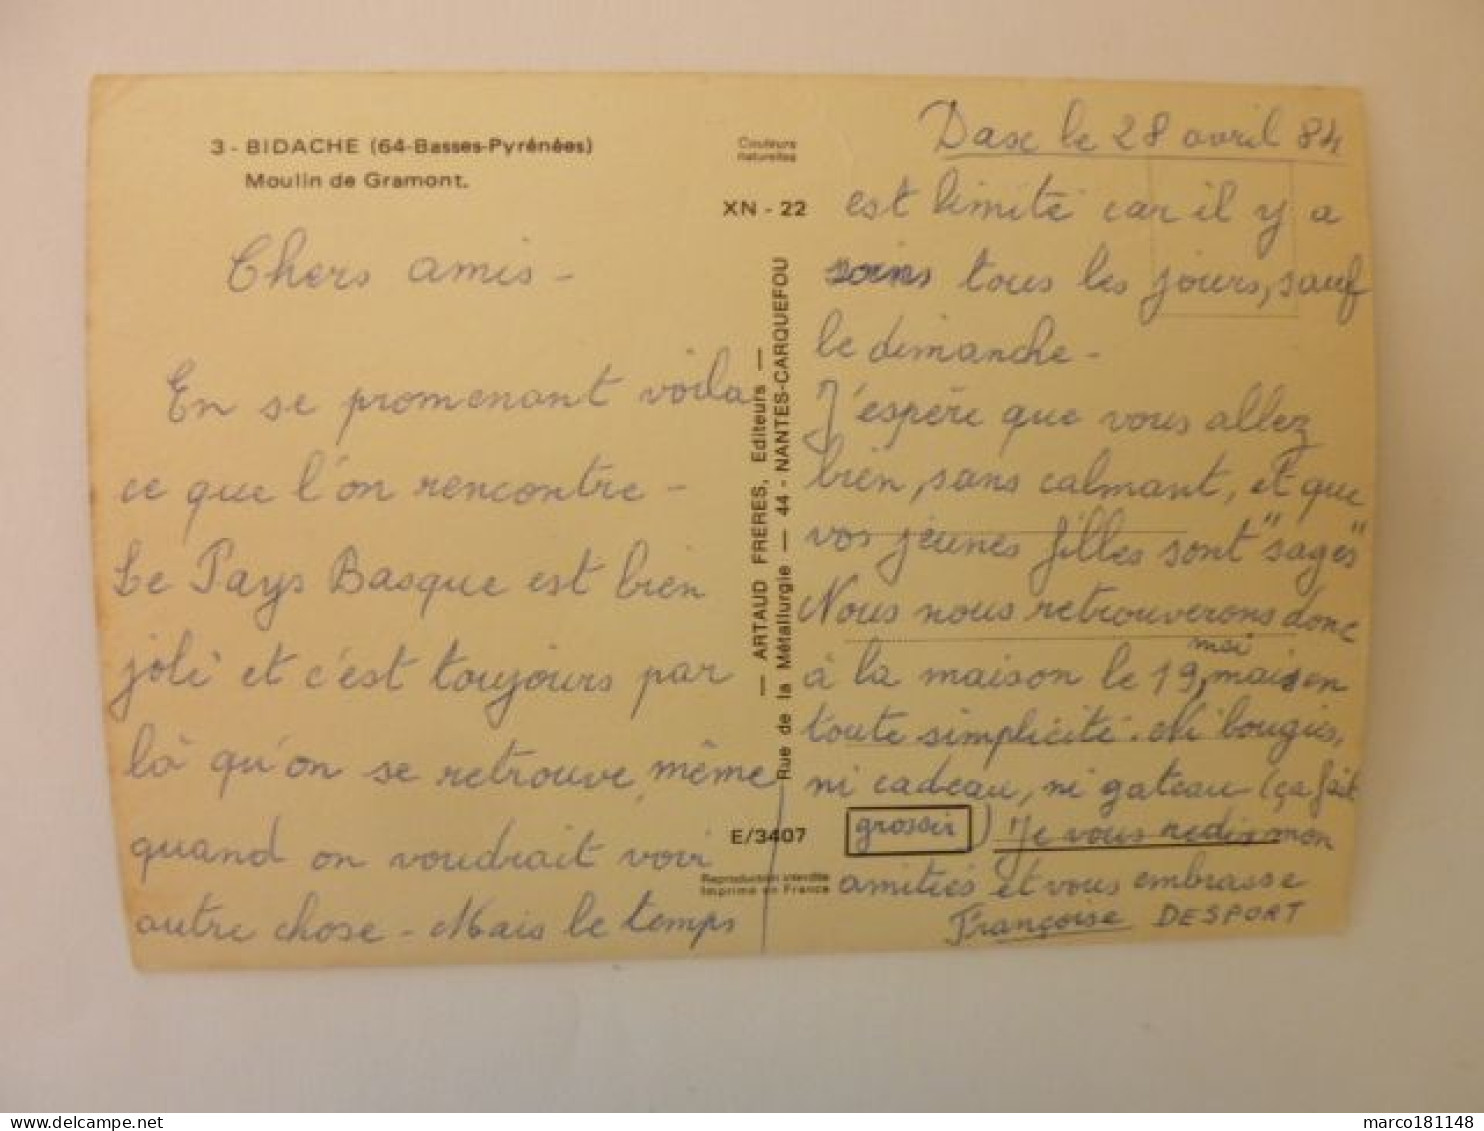 3 - BIDACHE (64-Basses-Pyrénées)
Moulin de Gramont.
Couleurs
naturelles
XN - 22
— ARTAUD FRERES, Editeurs —
Rue de la Métallurgie — 44 - NANTES-CARQUEFOU
E/3407
Reproduction interdite
Imprimé en France
Chers amis -
En se promenant voila
ce que l'on rencontre -
Le Pays Basque est bien
joli et c'est toujours par
là qu'on se retrouve, même
quand on voudrait voir
autre chose - Mais le temps
Dax le 28 avril 84
est limité car il y a
soins tous les jours, sauf
le dimanche -
J'espère que vous allez
bien, sans calmant, et que
vos jeunes filles sont "sages"
Nous nous retrouverons donc
à la maison le 19 mai, mais en
toute simplicité. Ni bougies,
ni cadeau, ni gateau (ça fait
grossir) Je vous redis mon
amitiés et vous embrasse
Françoise DESPORT
marco181148